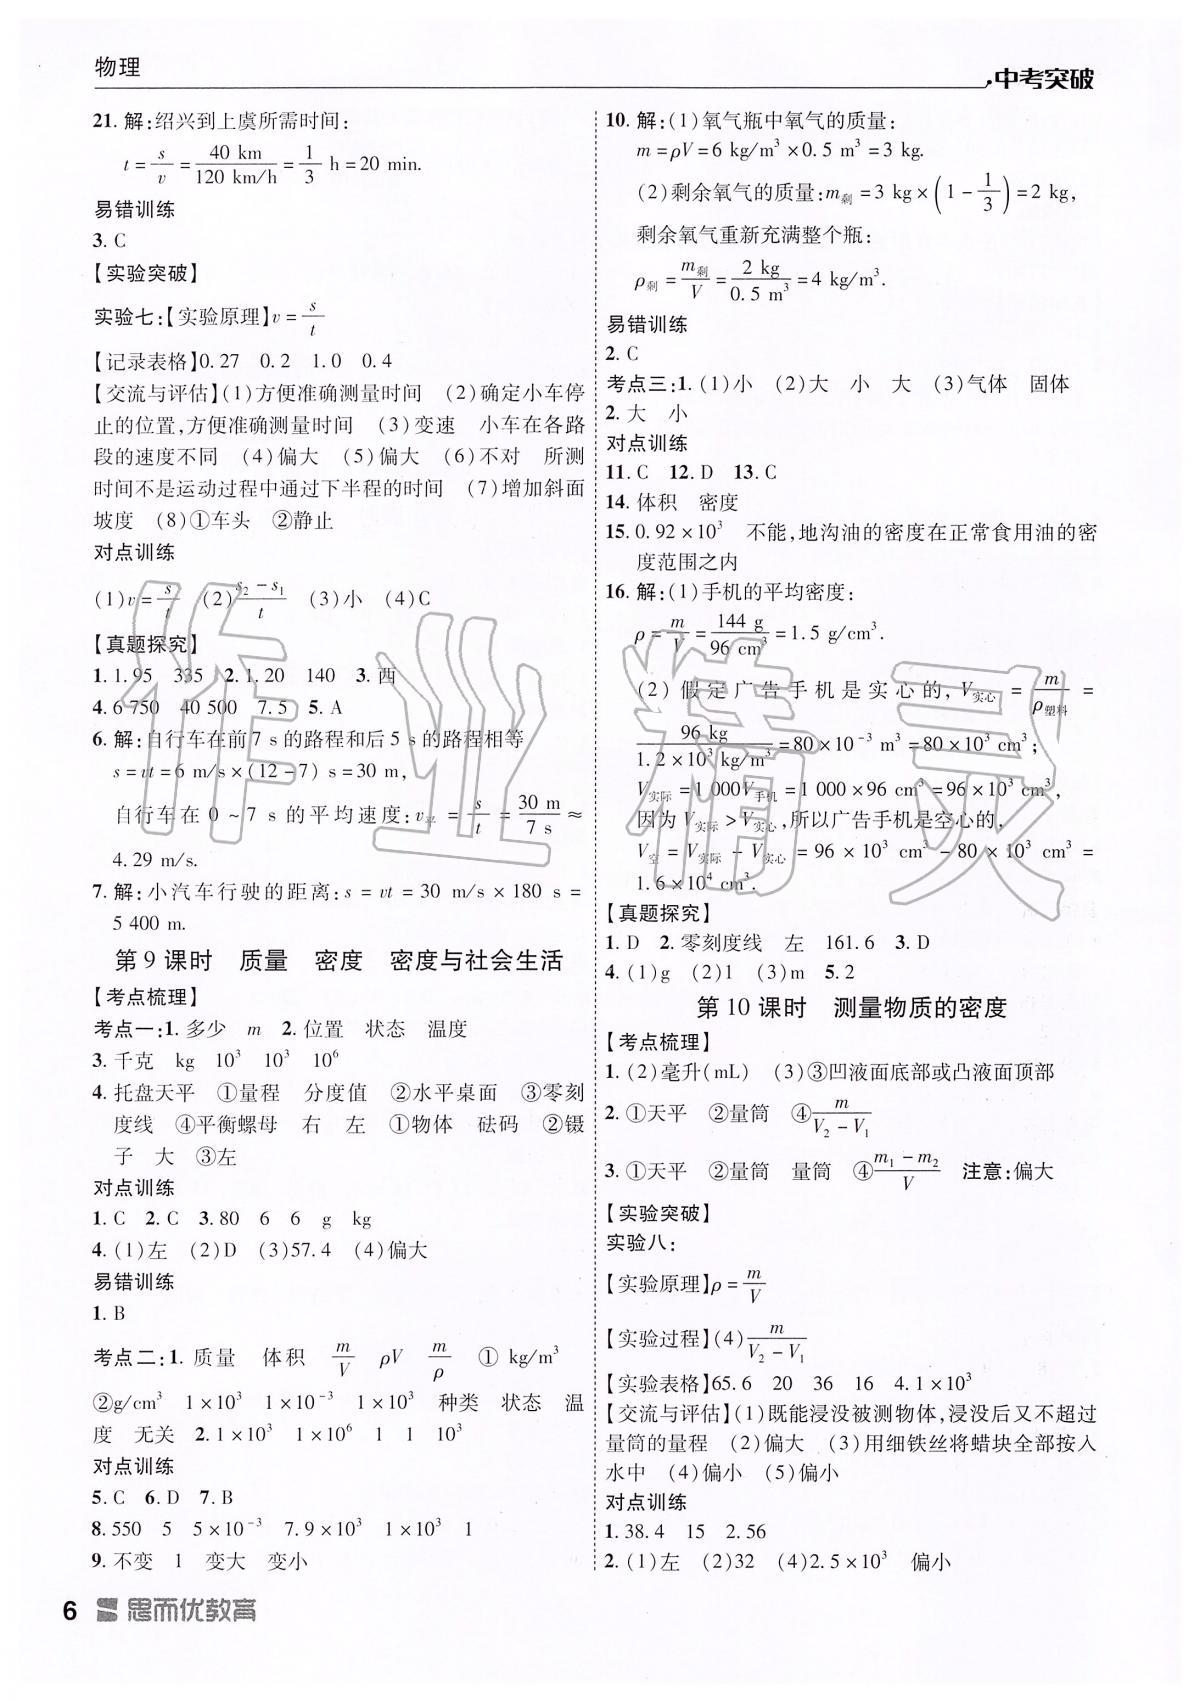 物理
中考突破
21. 解:绍兴到上虞所需时间:
t = s/v = 40 km/120 km/h = 1/3 h = 20 min.
易错训练
3. C
【实验突破】
实验七:【实验原理】v = s/t
【记录表格】0.27 0.2 1.0 0.4
【交流与评估】(1)方便准确测量时间 (2)确定小车停
止的位置,方便准确测量时间 (3)变速 小车在各路
段的速度不同 (4)偏大 (5)偏大 (6)不对 所测
时间不是运动过程中通过下半程的时间 (7)增加斜面
坡度 (8)①车头 ②静止
对点训练
(1)v = s/t (2)s₂ - s₁/t (3)小 (4)C
【真题探究】
1. 1.95 335 2. 1.20 140 3. 西
4. 6 750 40 500 7.5 5. A
6. 解:自行车在前 7 s 的路程和后 5 s 的路程相等
s = vt = 6 m/s × (12 - 7) s = 30 m,
自行车在 0 ~ 7 s 的平均速度: v平 = s/t = 30 m/7 s ≈
4.29 m/s.
7. 解:小汽车行驶的距离: s = vt = 30 m/s × 180 s =
5 400 m.
第 9 课时 质量 密度 密度与社会生活
【考点梳理】
考点一:1. 多少 m 2. 位置 状态 温度
3. 千克 kg 10³ 10³ 10⁶
4. 托盘天平 ①量程 分度值 ②水平桌面 ③零刻
度线 ④平衡螺母 右 左 ①物体 砝码 ②镊
子 大 ③左
对点训练
1. C 2. C 3. 80 6 6 g kg
4. (1)左 (2)D (3)57.4 (4)偏大
易错训练
1. B
考点二:1. 质量 体积 m/V ρV m/ρ ① kg/m³
②g/cm³ 1×10³ 1×10⁻³ 1×10³ 种类 状态 温
度 无关 2. 1×10³ 1×10⁶ 1 1 10³
对点训练
5. C 6. D 7. B
8. 550 5 5×10⁻³ 7.9×10³ 1×10³ 1
9. 不变 1 变大 变小
10. 解:(1)氧气瓶中氧气的质量:
m = ρV = 6 kg/m³ × 0.5 m³ = 3 kg.
(2)剩余氧气的质量: m剩 = 3 kg × (1 - 1/3) = 2 kg,
剩余氧气重新充满整个瓶:
ρ剩 = m剩/V = 2 kg/0.5 m³ = 4 kg/m³.
易错训练
2. C
考点三:1. (1)小 (2)大 小 大 (3)气体 固体
2. 大 小
对点训练
11. C 12. D 13. C
14. 体积 密度
15. 0.92×10³ 不能,地沟油的密度在正常食用油的密
度范围之内
16. 解:(1)手机的平均密度:
ρ = m/V = 144 g/96 cm³ = 1.5 g/cm³.
(2)假定广告手机是实心的, V实心 = m/ρ塑料 =
96 kg/1.2×10³ kg/m³ = 80×10⁻³ m³ = 80×10³ cm³;
V实际 = 1 000V手机 = 1 000×96 cm³ = 96×10³ cm³,
因为 V实际 > V实心,所以广告手机是空心的,
V空 = V实际 - V实心 = 96×10³ cm³ - 80×10³ cm³ =
1.6×10⁴ cm³.
【真题探究】
1. D 2. 零刻度线 左 161.6 3. D
4. (1)g (2)1 (3)m 5. 2
第 10 课时 测量物质的密度
【考点梳理】
1. (2)毫升(mL) (3)③凹液面底部或凸液面顶部
2. ①天平 ②量筒 ④m/V₂ - V₁
3. ①天平 ②量筒 量筒 ④m₁ - m₂/V 注意:偏大
【实验突破】
实验八:
【实验原理】ρ = m/V
【实验过程】(4)m/V₂ - V₁
【实验表格】65.6 20 36 16 4.1×10³
【交流与评估】(1)既能浸没被测物体,浸没后又不超过
量筒的量程 (2)偏大 (3)用细铁丝将蜡块全部按入
水中 (4)偏小 (5)偏小
对点训练
1. 38.4 15 2.56
2. (1)左 (2)32 (4)2.5×10³ 偏小
6 思而优教育
作业精灵